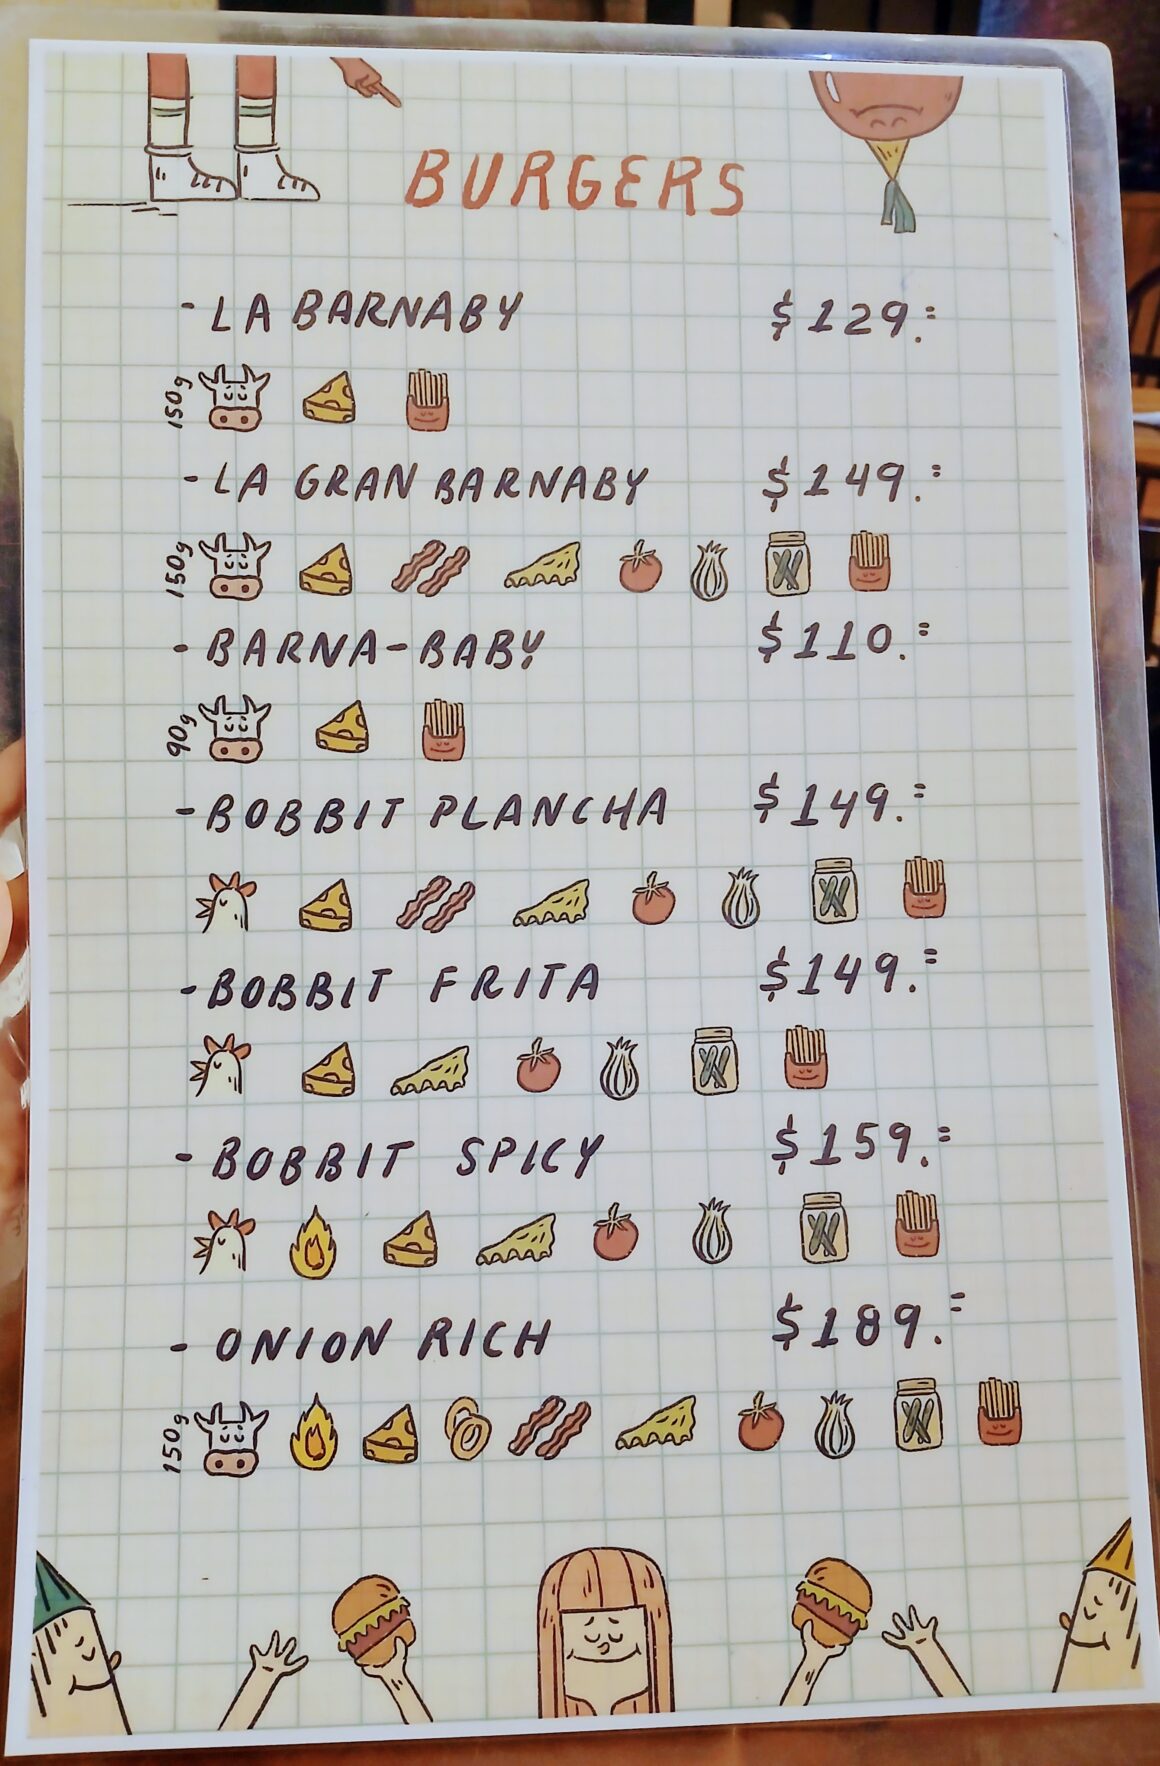 BURGERS
- LA BARNABY $129.=
150g
- LA GRAN BARNABY $149.=
150g
- BARNA-BABY $110.=
90g
- BOBBIT PLANCHA $149.=
- BOBBIT FRITA $149.=
- BOBBIT SPICY $159.=
- ONION RICH $189.=
150g